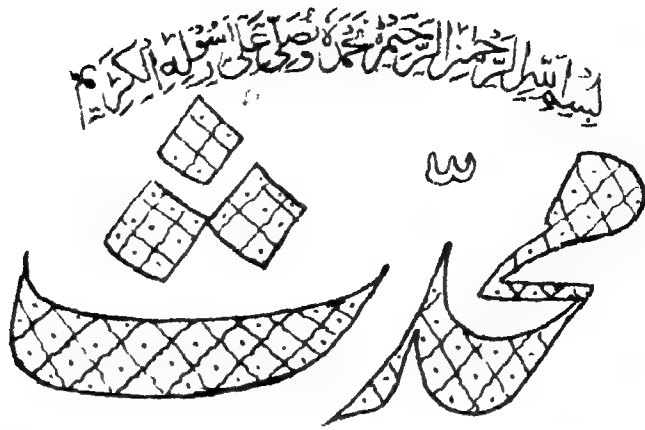 بسم الله الرحمن الرحيم نحمده ونصلی علی رسوله الکریم
محدث